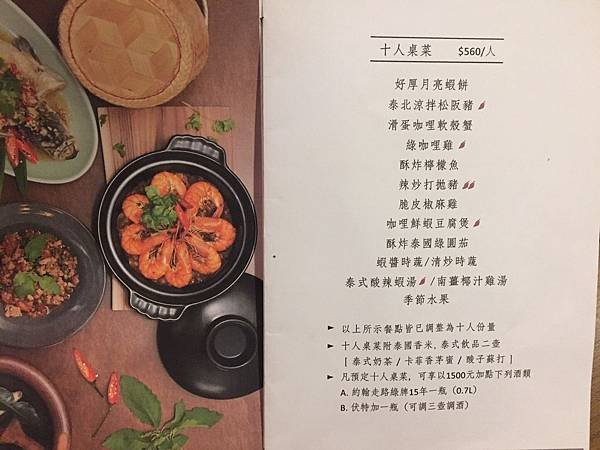 十人桌菜 $560/人
好厚月亮蝦餅
泰北涼拌松阪豬
滑蛋咖哩軟殼蟹
綠咖哩雞
酥炸檸檬魚
辣炒打拋豬
脆皮椒麻雞
咖哩鮮蝦豆腐煲
酥炸泰國綠圓茄
蝦醬時蔬/清炒時蔬
泰式酸辣蝦湯/南薑椰汁雞湯
季節水果
► 以上所示餐點皆已調整為十人份量
► 十人桌菜附泰國香米, 泰式飲品二壺
[ 泰式奶茶 / 卡菲香茅蜜 / 酸子蘇打 ]
► 凡預定十人桌菜, 可享以1500元加點下列酒類
A. 約翰走路綠牌15年一瓶 (0.7L)
B. 伏特加一瓶 (可調三壺調酒)